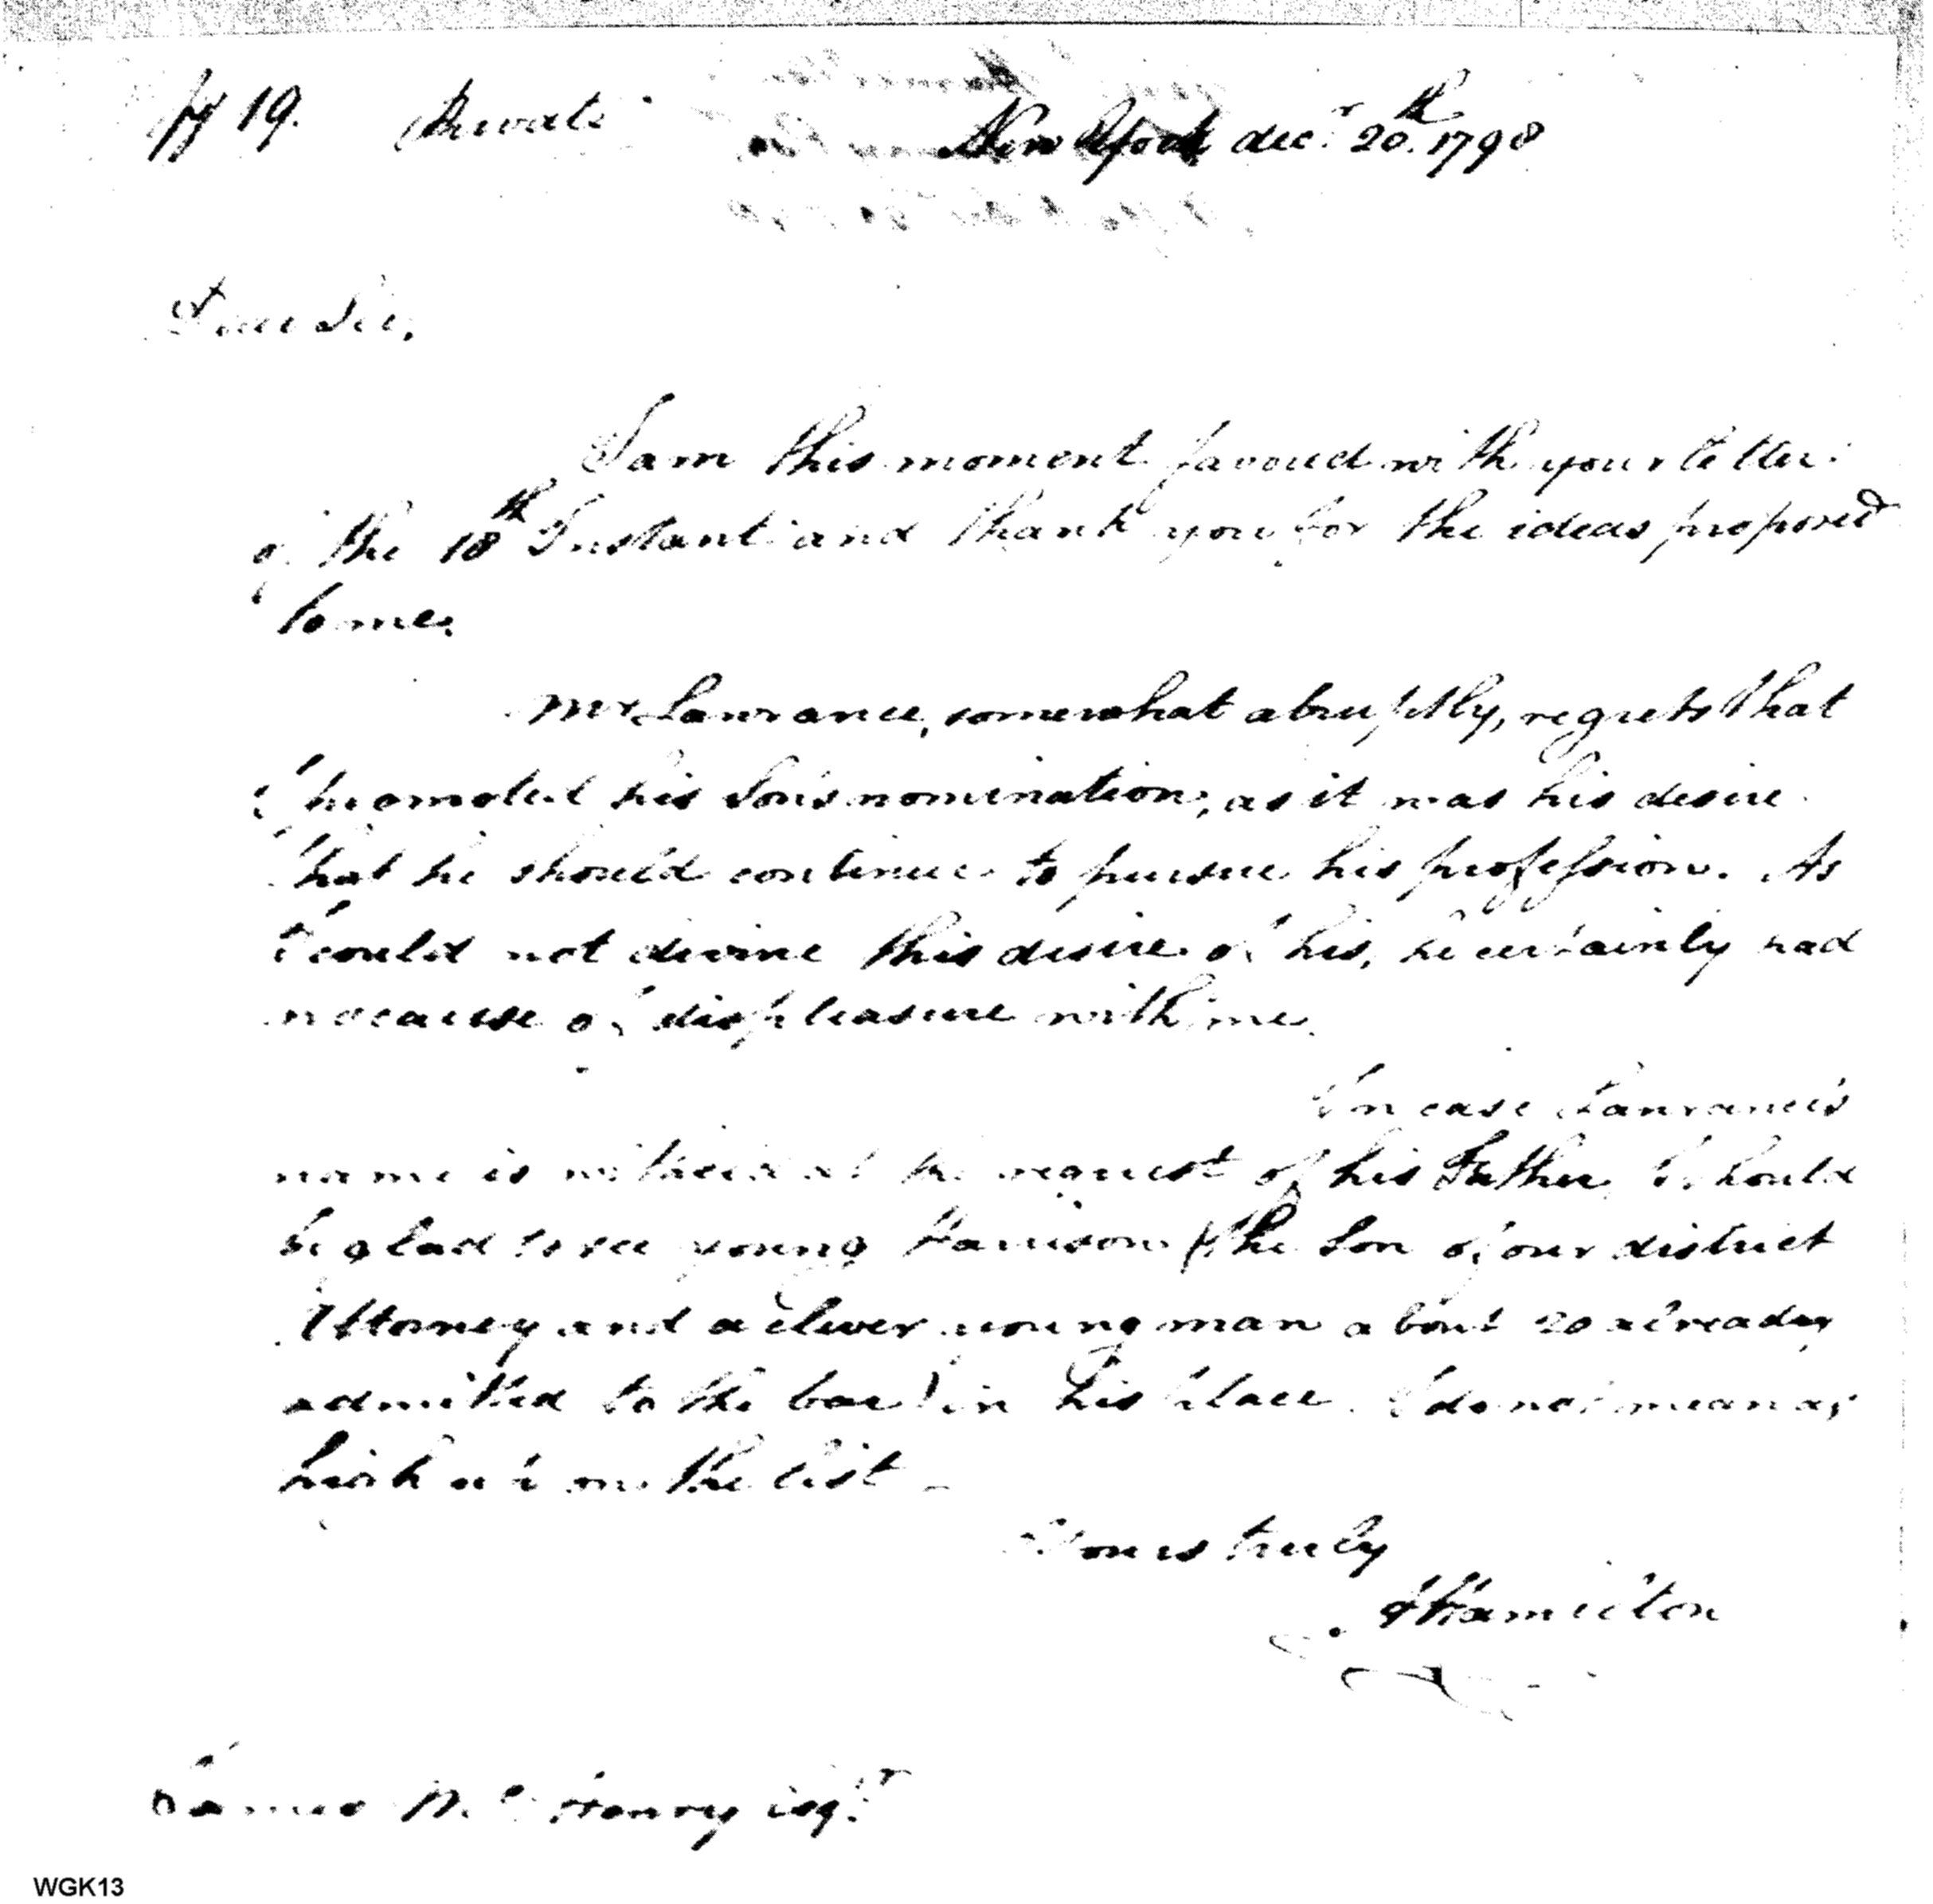 19. Private New York decr. 20th. 1798
Dear Sir,
I am this moment favoured with your letter
of the 18th Instant and thank you for the ideas proposed
to me.
Mr Lawrance, somewhat abruptly, regrets that
I promoted his Son's nomination, as it was his desire
that he should continue to pursue his profession. As
I could not divine this desire of his, he certainly had
no cause of displeasure with me.
In case Lawrance's
name is withdrawn at the request of his Father, I should
be glad to see young Harrison (the Son of our district
Attorney and a clever young man about 20 already
admitted to the bar) in his place. I do not mean as
high up on the list —
Yours truly
A Hamilton
James McHenry esqr.
WGK13